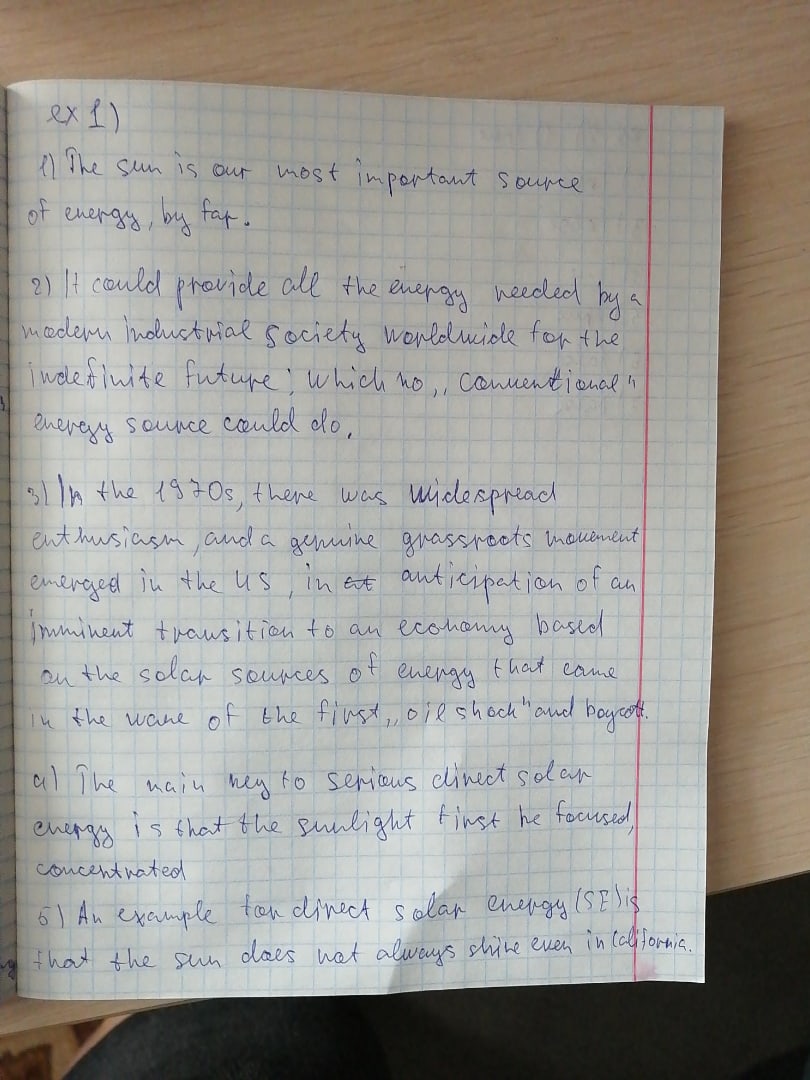 ex 1)
1) The sun is our most important source
of energy, by far.
2) It could provide all the energy needed by a
modern industrial society worldwide for the
indefinite future; which no „conventional"
energy source could do.
3) In the 1970s, there was widespread
enthusiasm, and a genuine grassroots movement
emerged in the US, in anticipation of an
imminent transition to an economy based
on the solar sources of energy that came
in the wake of the first „oil shock" and boycott.
4) The main key to serious direct solar
energy is that the sunlight first be focused,
concentrated
5) An example for direct solar energy (SE) is
that the sun does not always shine even in California.